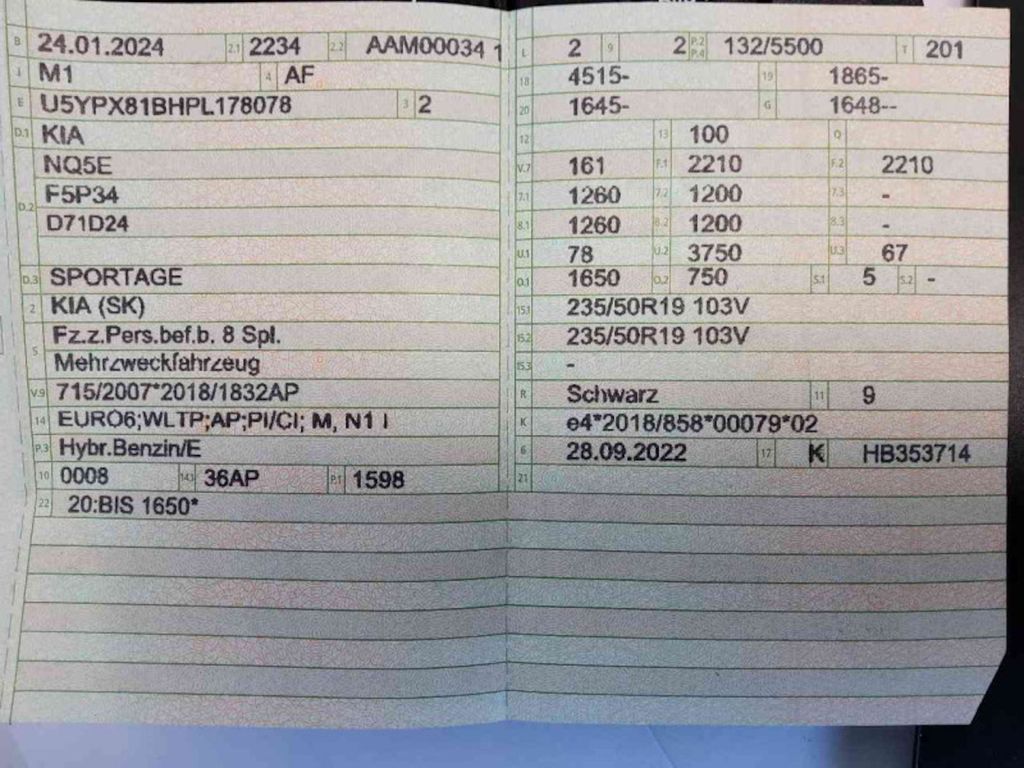 B 24.01.2024 2.1 2234 2.2 AAM00034 1
J M1 4 AF
E U5YPX81BHPL178078 3 2
D.1 KIA
D.2 NQ5E
F5P34
D71D24
D.3 SPORTAGE
2 KIA (SK)
5 Fz.z.Pers.bef.b. 8 Spl.
Mehrzweckfahrzeug
V.9 715/2007*2018/1832AP
14 EURO6;WLTP;AP;PI/CI; M, N1 I
P.3 Hybr.Benzin/E
10 0008 14.1 36AP P.1 1598
22 20:BIS 1650*
L 2 9 2 P.2 P.4 132/5500 T 201
18 4515- 19 1865-
20 1645- G 1648--
12 13 100 Q
V.7 161 F.1 2210 F.2 2210
7.1 1260 7.2 1200 7.3 -
8.1 1260 8.2 1200 8.3 -
U.1 78 U.2 3750 U.3 67
O.1 1650 O.2 750 S.1 5 S.2 -
15.1 235/50R19 103V
15.2 235/50R19 103V
15.3 -
R Schwarz 11 9
K e4*2018/858*00079*02
6 28.09.2022 17 K HB353714
21